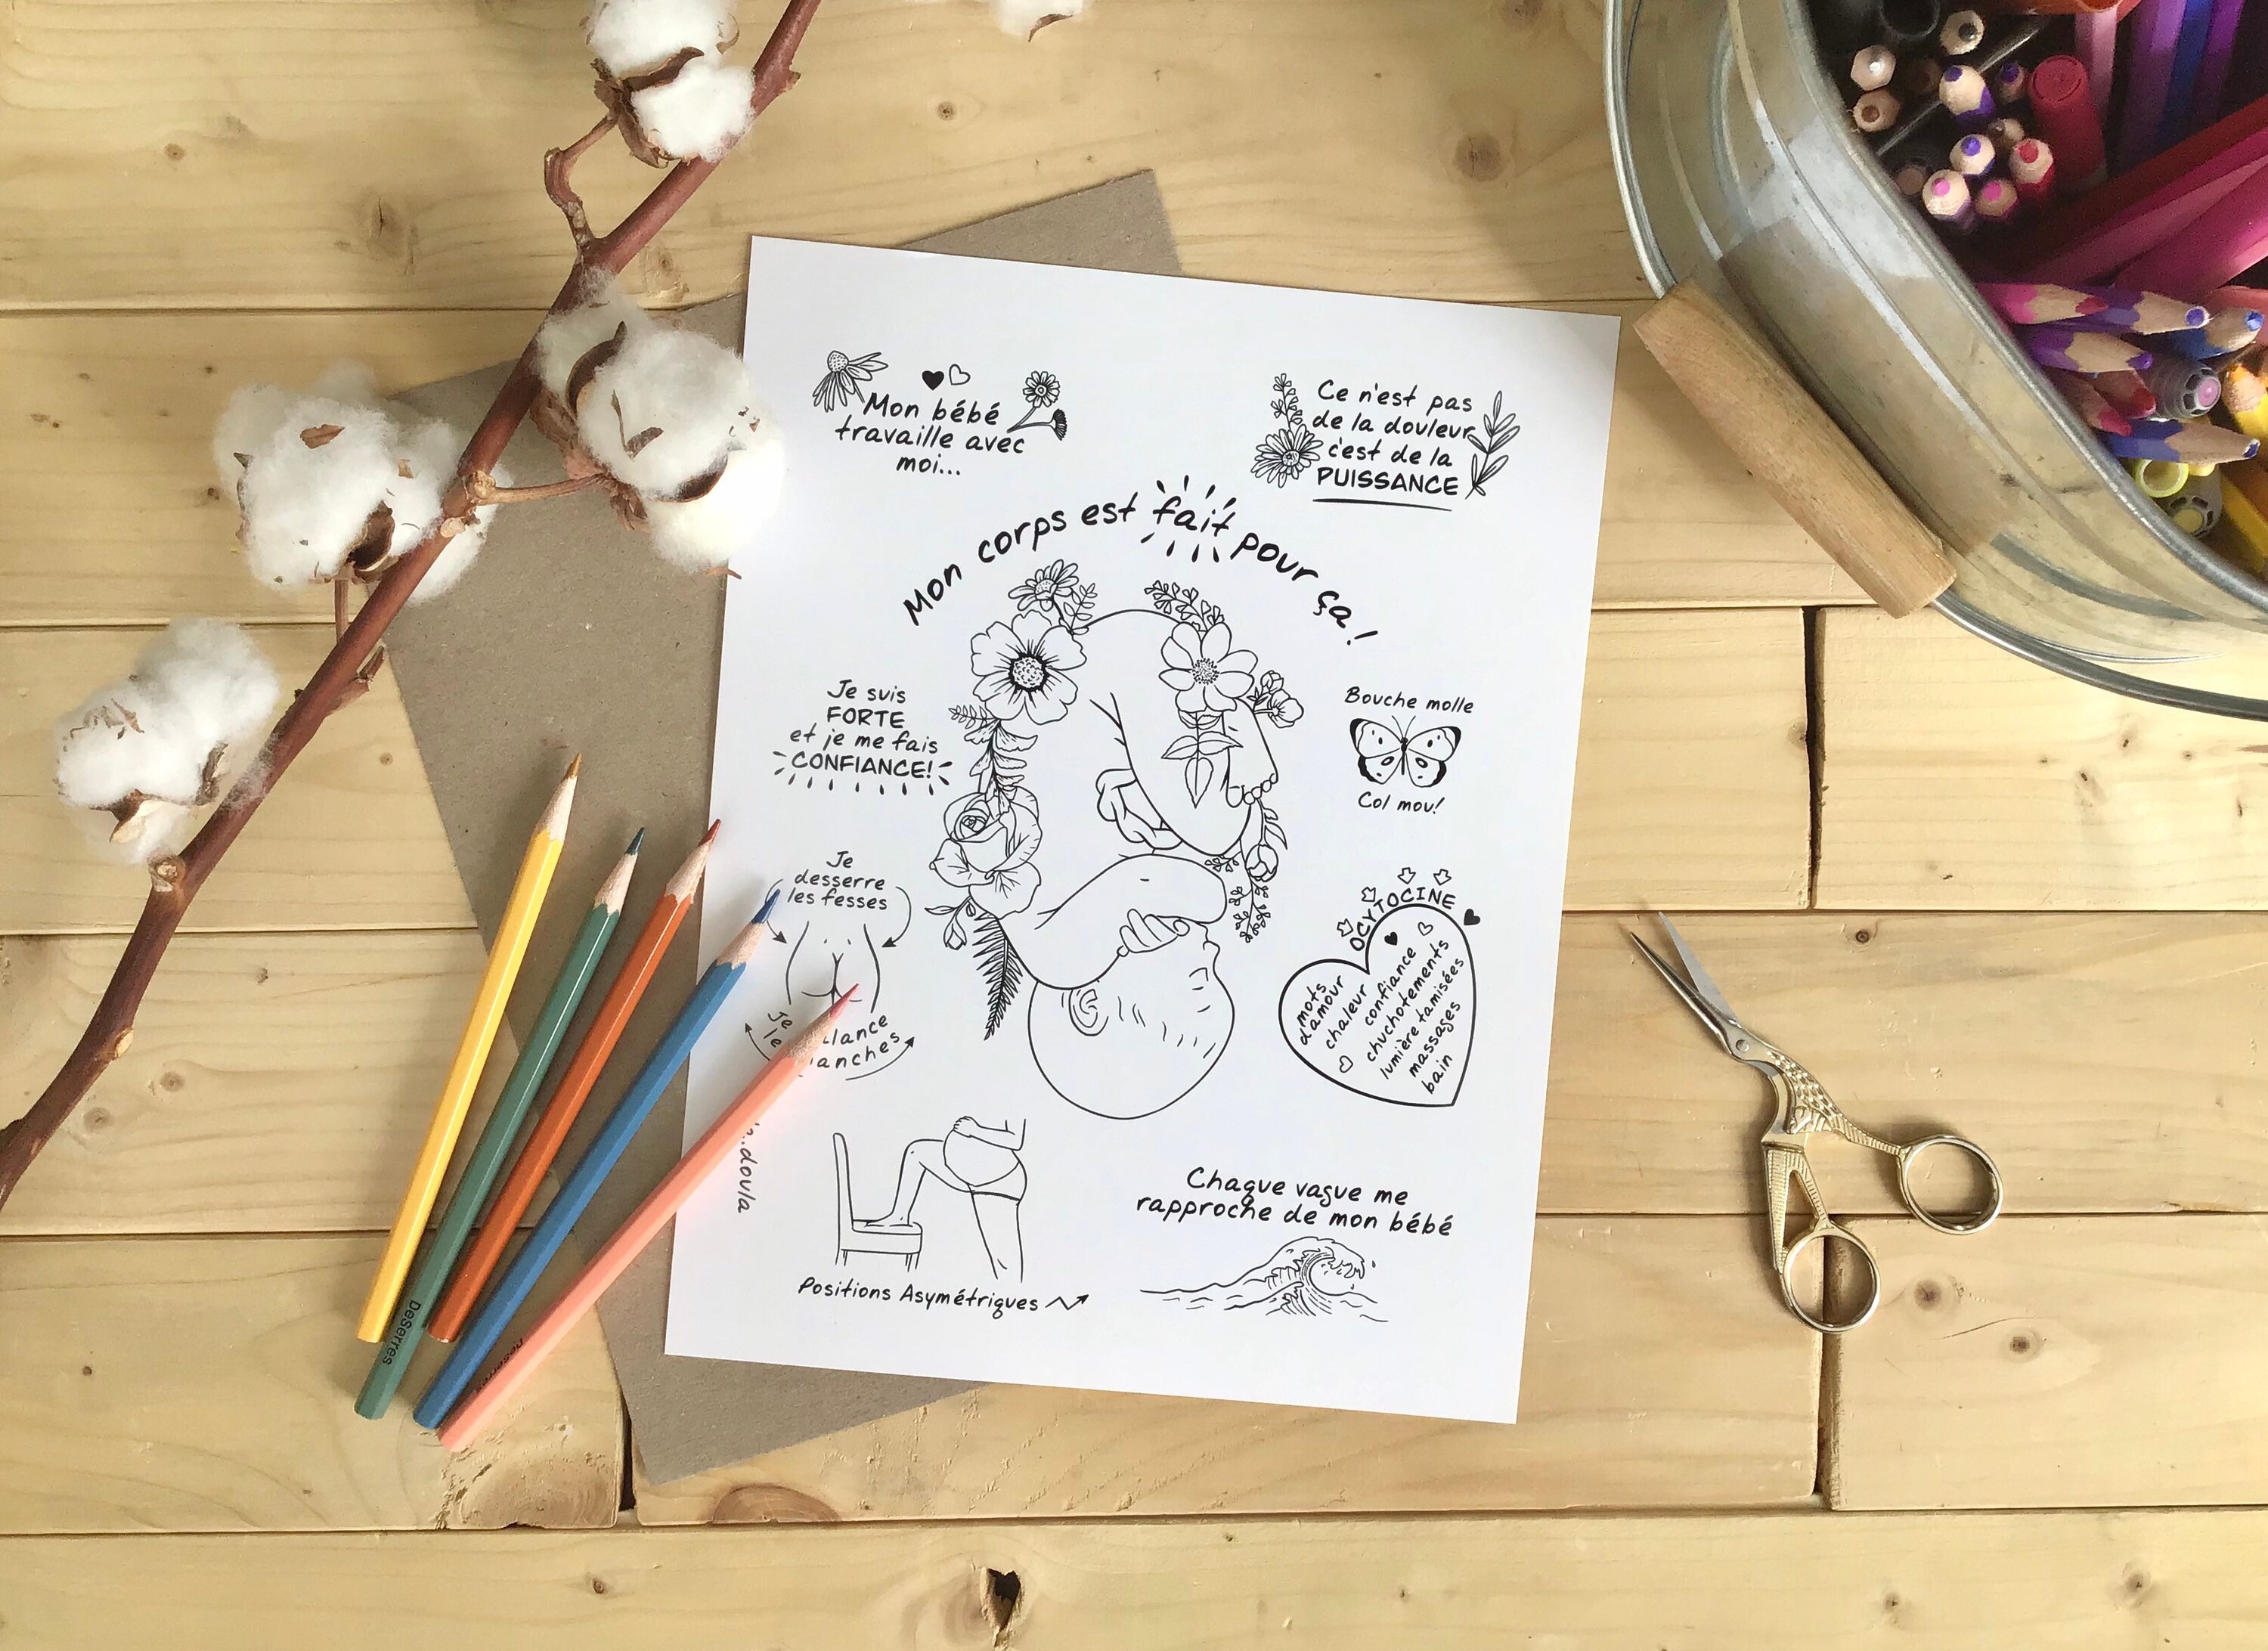 Mon bébé
travaille avec
moi...
Ce n'est pas
de la douleur
c'est de la
PUISSANCE
Mon corps est fait pour ça!
Je suis
FORTE
et je me fais
CONFIANCE!
Bouche molle
Col mou!
Je
desserre
les fesses
Je
le
OCYTOCINE
mots
d'amour
chaleur
confiance
chuchotements
lumière tamisées
massages
bain
doula
Positions Asymétriques
Chaque vague me
rapproche de mon bébé
DeSerres